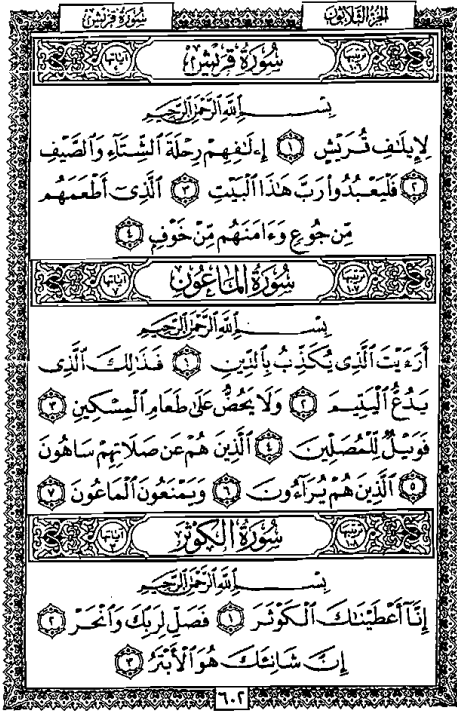 سُورَةُ قُرَيْشٍ الجُزْءُ الثَّلَاثُونَ
ترتيبها ١٠٦ سُورَةُ قُرَيْشٍ آياتها ٤
بِسْمِ ٱللَّهِ ٱلرَّحْمَٰنِ ٱلرَّحِيمِ
لِإِيلَٰفِ قُرَيْشٍ ١ إِۦلَٰفِهِمْ رِحْلَةَ ٱلشِّتَآءِ وَٱلصَّيْفِ
٢ فَلْيَعْبُدُوا۟ رَبَّ هَٰذَا ٱلْبَيْتِ ٣ ٱلَّذِىٓ أَطْعَمَهُم
مِّن جُوعٍ وَءَامَنَهُم مِّنْ خَوْفٍ ٤
ترتيبها ١٠٧ سُورَةُ المَاعُونِ آياتها ٧
بِسْمِ ٱللَّهِ ٱلرَّحْمَٰنِ ٱلرَّحِيمِ
أَرَءَيْتَ ٱلَّذِى يُكَذِّبُ بِٱلدِّينِ ١ فَذَٰلِكَ ٱلَّذِى
يَدُعُّ ٱلْيَتِيمَ ٢ وَلَا يَحُضُّ عَلَىٰ طَعَامِ ٱلْمِسْكِينِ ٣
فَوَيْلٌ لِّلْمُصَلِّينَ ٤ ٱلَّذِينَ هُمْ عَن صَلَاتِهِمْ سَاهُونَ
٥ ٱلَّذِينَ هُمْ يُرَآءُونَ ٦ وَيَمْنَعُونَ ٱلْمَاعُونَ ٧
ترتيبها ١٠٨ سُورَةُ الكَوْثَرِ آياتها ٣
بِسْمِ ٱللَّهِ ٱلرَّحْمَٰنِ ٱلرَّحِيمِ
إِنَّآ أَعْطَيْنَٰكَ ٱلْكَوْثَرَ ١ فَصَلِّ لِرَبِّكَ وَٱنْحَرْ ٢
إِنَّ شَانِئَكَ هُوَ ٱلْأَبْتَرُ ٣
٦٠٢